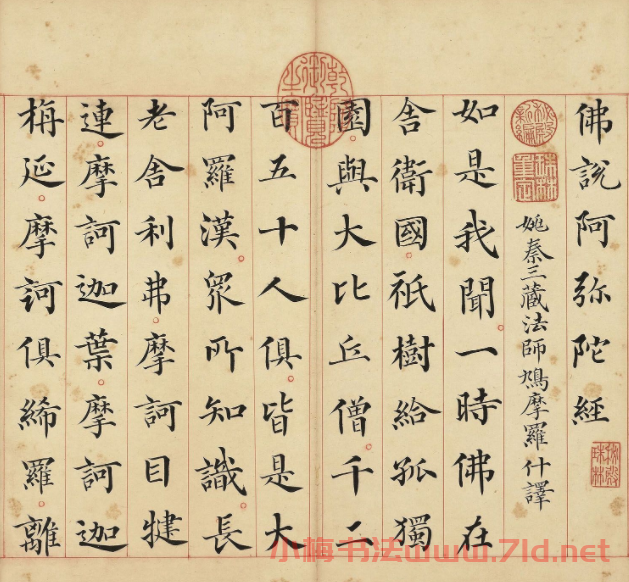 佛說阿弥陀經
秘殿珠林
秘殿新編
珠林重定
姚秦三藏法師鳩摩羅什譯
如是我聞。一時佛在
舍衛國。祇樹給孤獨
園。與大比丘僧。千二
百五十人俱。皆是大
阿羅漢。眾所知識。長
老舍利弗。摩訶目犍
連。摩訶迦葉。摩訶迦
栴延。摩訶俱絺羅。離
乾隆御覽之寶
小梅书法www.7ld.net